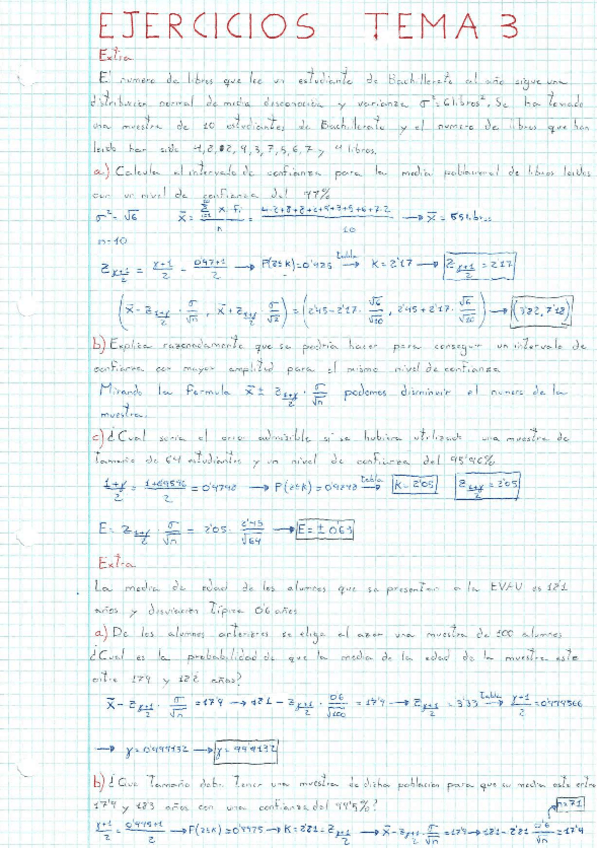 EJERCICIOS TEMA 3
Extra
El numero de libros que lee un estudiante de Bachillerato al año sigue una
distribución normal de media desconocida y varianza σ²=6 libros². Se ha tomado
una muestra de 10 estudiantes de Bachillerato y el numero de libros que han
leido han sido 4,3,7,5,6,7 y 4 libros.
a) Calcula el intervalo de confianza para la media poblacional de libros leidos
con un nivel de confianza del 97%
σ²=√6 x̄ = n = 10 → x̄ =
n=10
Z γ+1/2 = γ+1/2 = 0'97+1/2 → P(Z≤K)=0'985 tabla → K=2'17 → Z γ+1/2 = 2'17
(x̄ - Z γ+1/2 · σ/√n , x̄ + Z γ+1/2 · σ/√n) = → (3'82, 7'18)
b) Explica razonadamente que se podria hacer para conseguir un intervalo de
confianza con mayor amplitud para el mismo nivel de confianza
Mirando la formula x̄ ± Z γ+1/2 · σ/√n podemos disminuir el numero de la
muestra.
c) ¿Cual seria el error admisible si se hubiera utilizado una muestra de
tamaño de 64 estudiantes y un nivel de confianza del 95'96%
1+γ/2 = → P(Z≤K)= tabla → K=2'05 Z γ+1/2 = 2'05
E = Z γ+1/2 · σ/√n = 2'05 · 2'45/√64 → E=±0'61
Extra
La media de edad de los alumnos que se presentan a la EVAU es 18'1
años y desviacion tipica 0'6 años
a) De los alumnos anteriores se elige al azar una muestra de 100 alumnos
¿Cual es la probabilidad de que la media de la edad de la muestra este
entre 17'9 y 18'2 años?
x̄ - Z γ+1/2 · σ/√n = 17'9 → 18'1 - Z γ+1/2 · 0'6/√100 = 17'9 → Z γ+1/2 = 3'33 tabla → γ+1/2 = 0'999566
→ γ=0'999132 → γ=99'9132
b) ¿Que tamaño debe tener una muestra de dicha poblacion para que su media este entre
17'9 y 18'3 años con una confianza del 99'5%? n=71
γ+1/2 = 0'995+1/2 → P(Z≤K)=0'9975 → K=2'81=Z γ+1/2 → x̄-Z γ+1/2 · σ/√n = 17'9 → 18'1-2'81 0'6/√n = 17'9